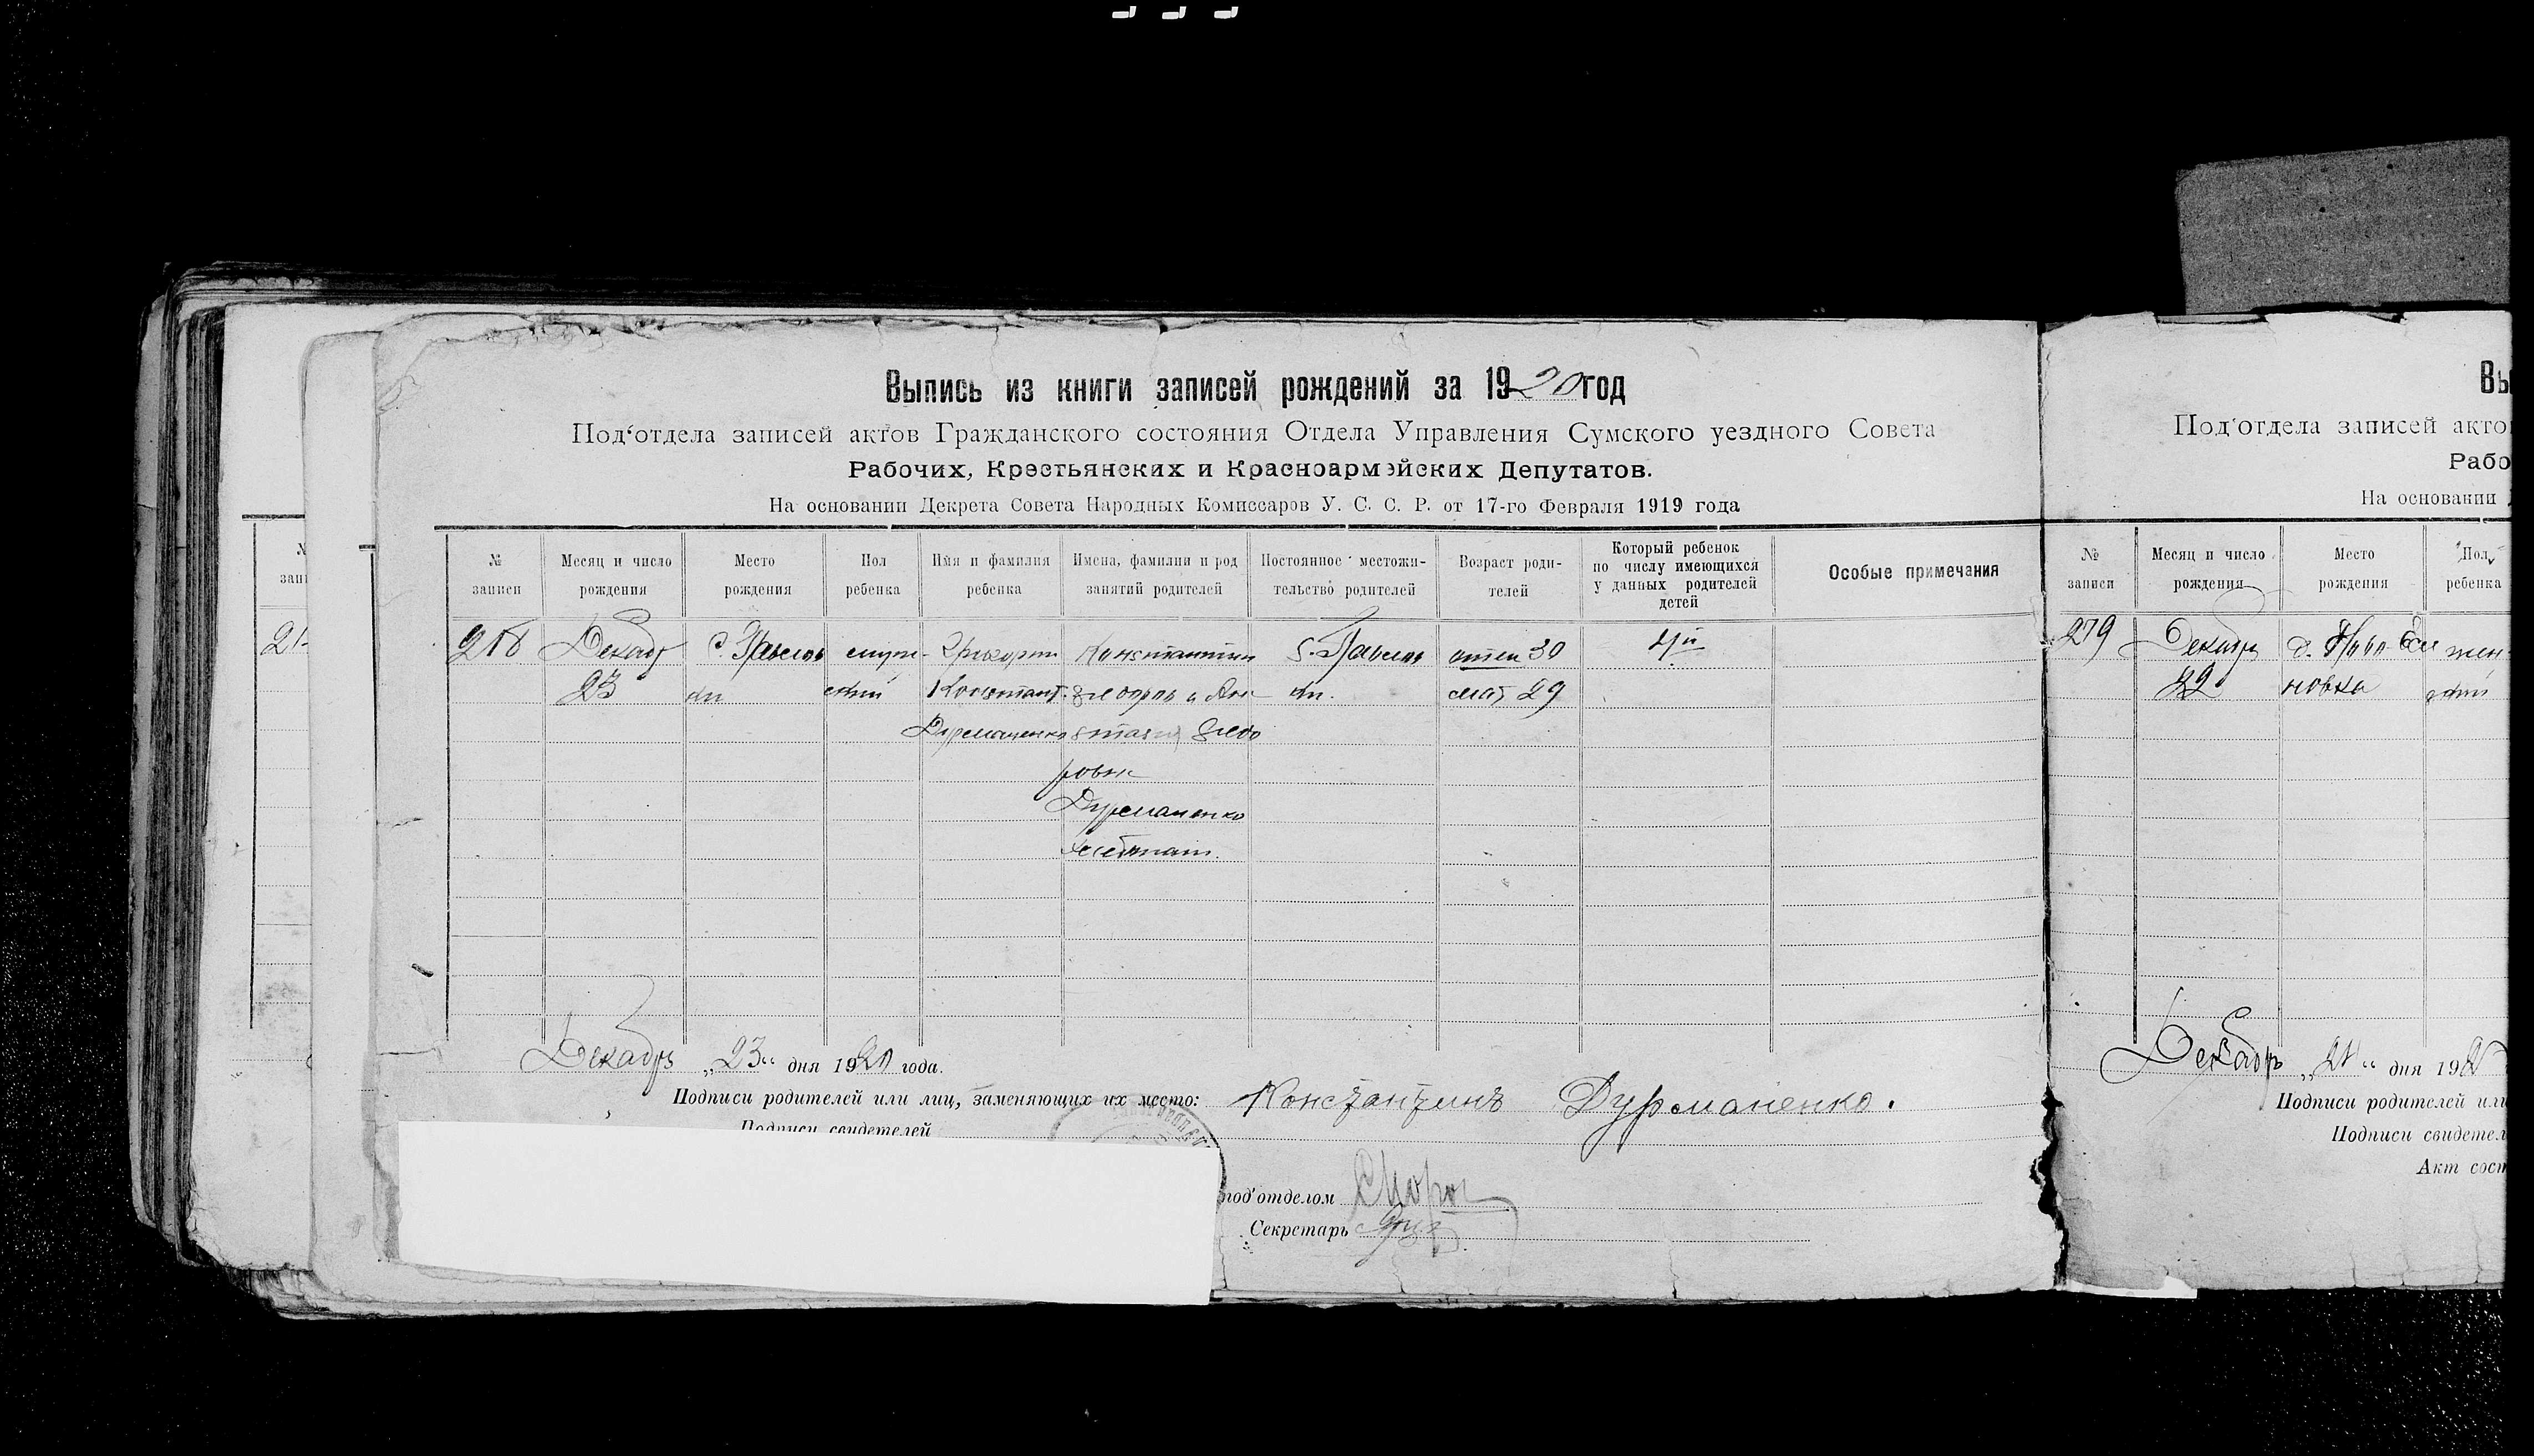 Выпись из книги записей рождений за 1920 год
Под‘отдела записей актов Гражданского состояния Отдела Управления Сумского уездного Совета
Рабочих, Крестьянских и Красноармейских Депутатов.
На основании Декрета Совета Народных Комиссаров У. С. С. Р. от 17-го Февраля 1919 года
№ записи
Месяц и число рождения
Место рождения
Пол ребенка
Имя и фамилия ребенка
Имена, фамилии и род занятий родителей
Постоянное местожительство родителей
Возраст родителей
Который ребенок по числу имеющихся у данных родителей детей
Особые примечания
Декабр
23
с. Павлов
ки
муж-
ской
Григорий
Констант.
Дурманенко
Константин
ровн
Дурманенко
с. Павлов
ки.
отец 30
мат 29
4й
Декабрь „23“ дня 1920 года.
Подписи родителей или лиц, заменяющих их место: Константинъ Дурманенко.
Подписи свидетелей
под‘отделом
Секретарь
Вы
Под‘отдела записей акто
Рабо
На основании
№ записи
Месяц и число рождения
Место рождения
Пол ребенка
279
Декабрь
22
новка
жен-
ский
Декабрь „24“ дня 192
Подписи родителей или
Подписи свидетел
Акт сост